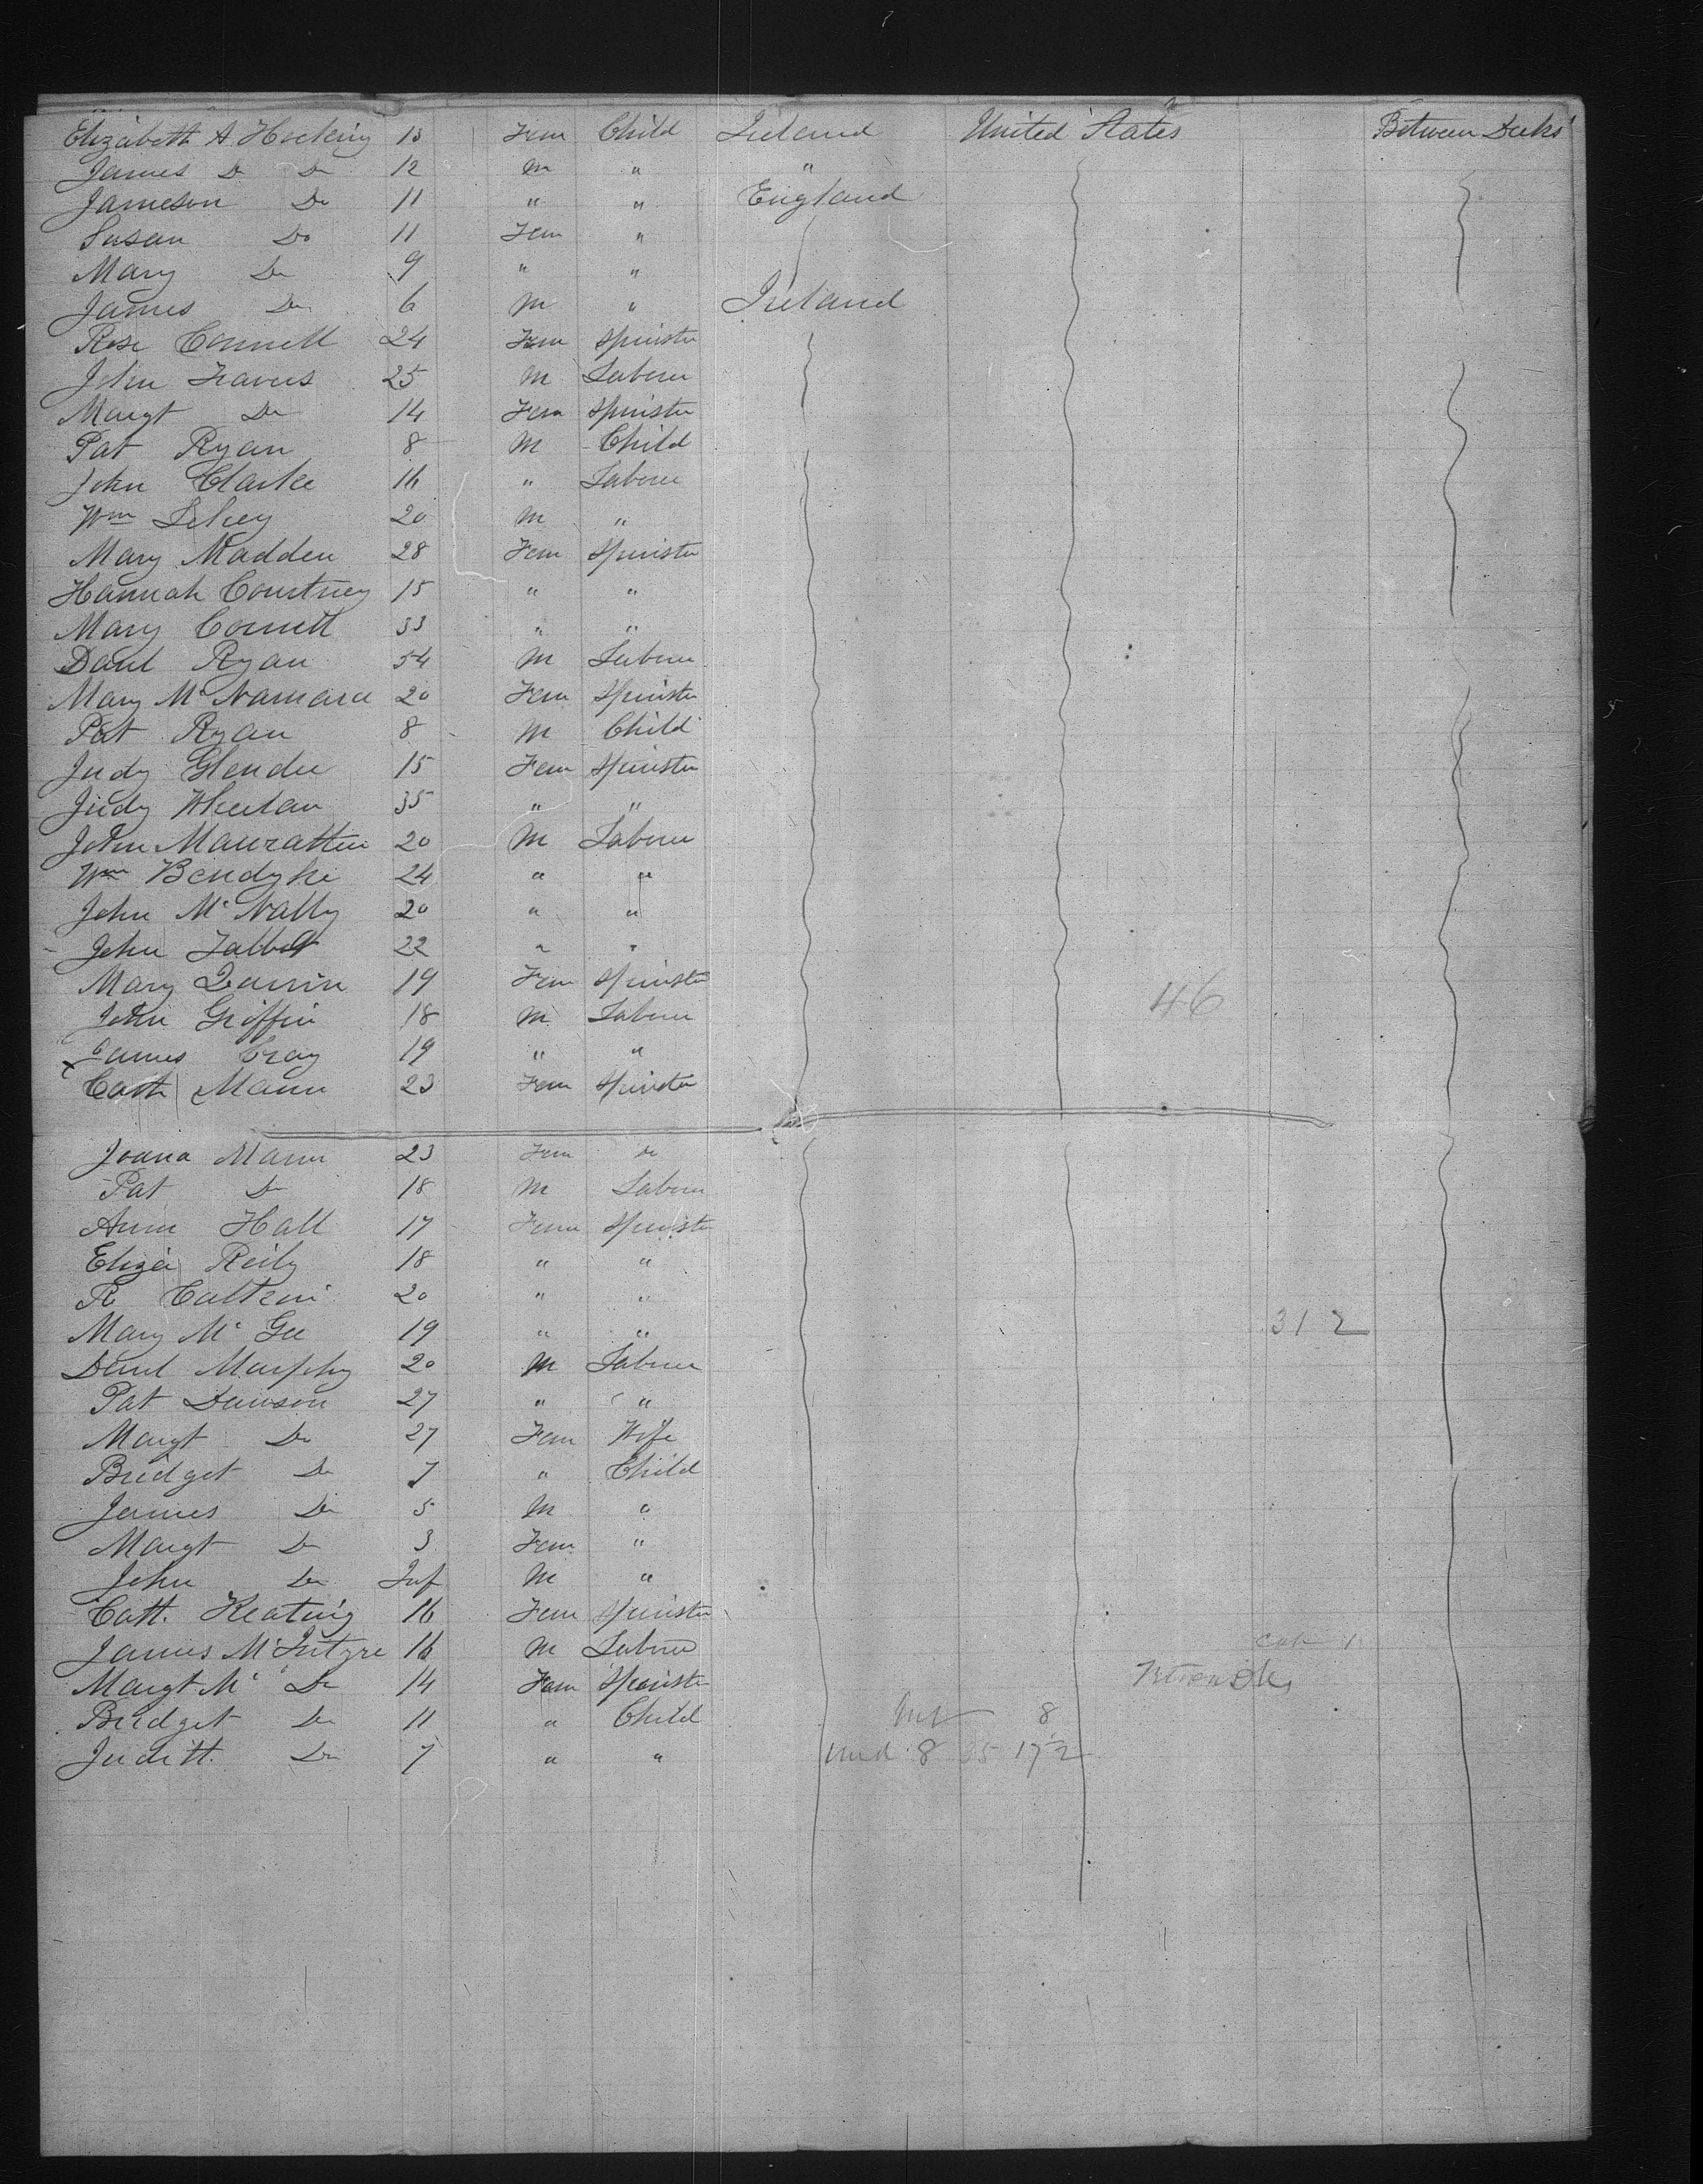 Elizabeth A Hocking 13 Fem Child Ireland United States Between Decks
James Do Do 12 M " "
Jameson Do 11 " " England
Susan Do 11 Fem "
Mary Do 9 " "
James Do 6 M " Ireland
Rose Connell 24 Fem Spinster
John Travers 25 M Laborer
Margt Do 14 Fem Spinster
Pat Ryan 8 M Child
John Clarke 16 " Laborer
Wm 20 M "
Mary Madden 28 Fem Spinster
Hannah Courtney 15 " "
Mary Connell 33 " "
Danl Ryan 54 M Laborer
Mary McNamara 20 Fem Spinster
Pat Ryan 8 M Child
Judy 15 Fem Spinster
Judy Wheelan 35 " "
John 20 M Laborer
Wm Bendyke 24 " "
John McNally 20 " "
John Talbot 22 " "
Mary 19 Fem Spinster
John Griffin 18 M Laborer 46
James 19 " "
Cath Mann 23 Fem Spinster
Joana Mann 23 Fem Do
Pat Do 18 M Laborer
Anne Hall 17 Fem Spinster
Eliza Reily 18 " "
R 20 " "
Mary McGee 19 " " 312
Danl Murphy 20 M Laborer
Pat Dawson 27 " "
Margt Do 27 Fem Wife
Bridget Do 7 " Child
James Do 5 M "
Margt Do 3 Fem "
John Do Inf M "
Cath. Keating 16 Fem Spinster
James McIntyre 16 M Laborer
Margt Mc Do 14 Fem Spinster
Bridget Do 11 " Child 8
Judith Do 7 " " 8 35 172